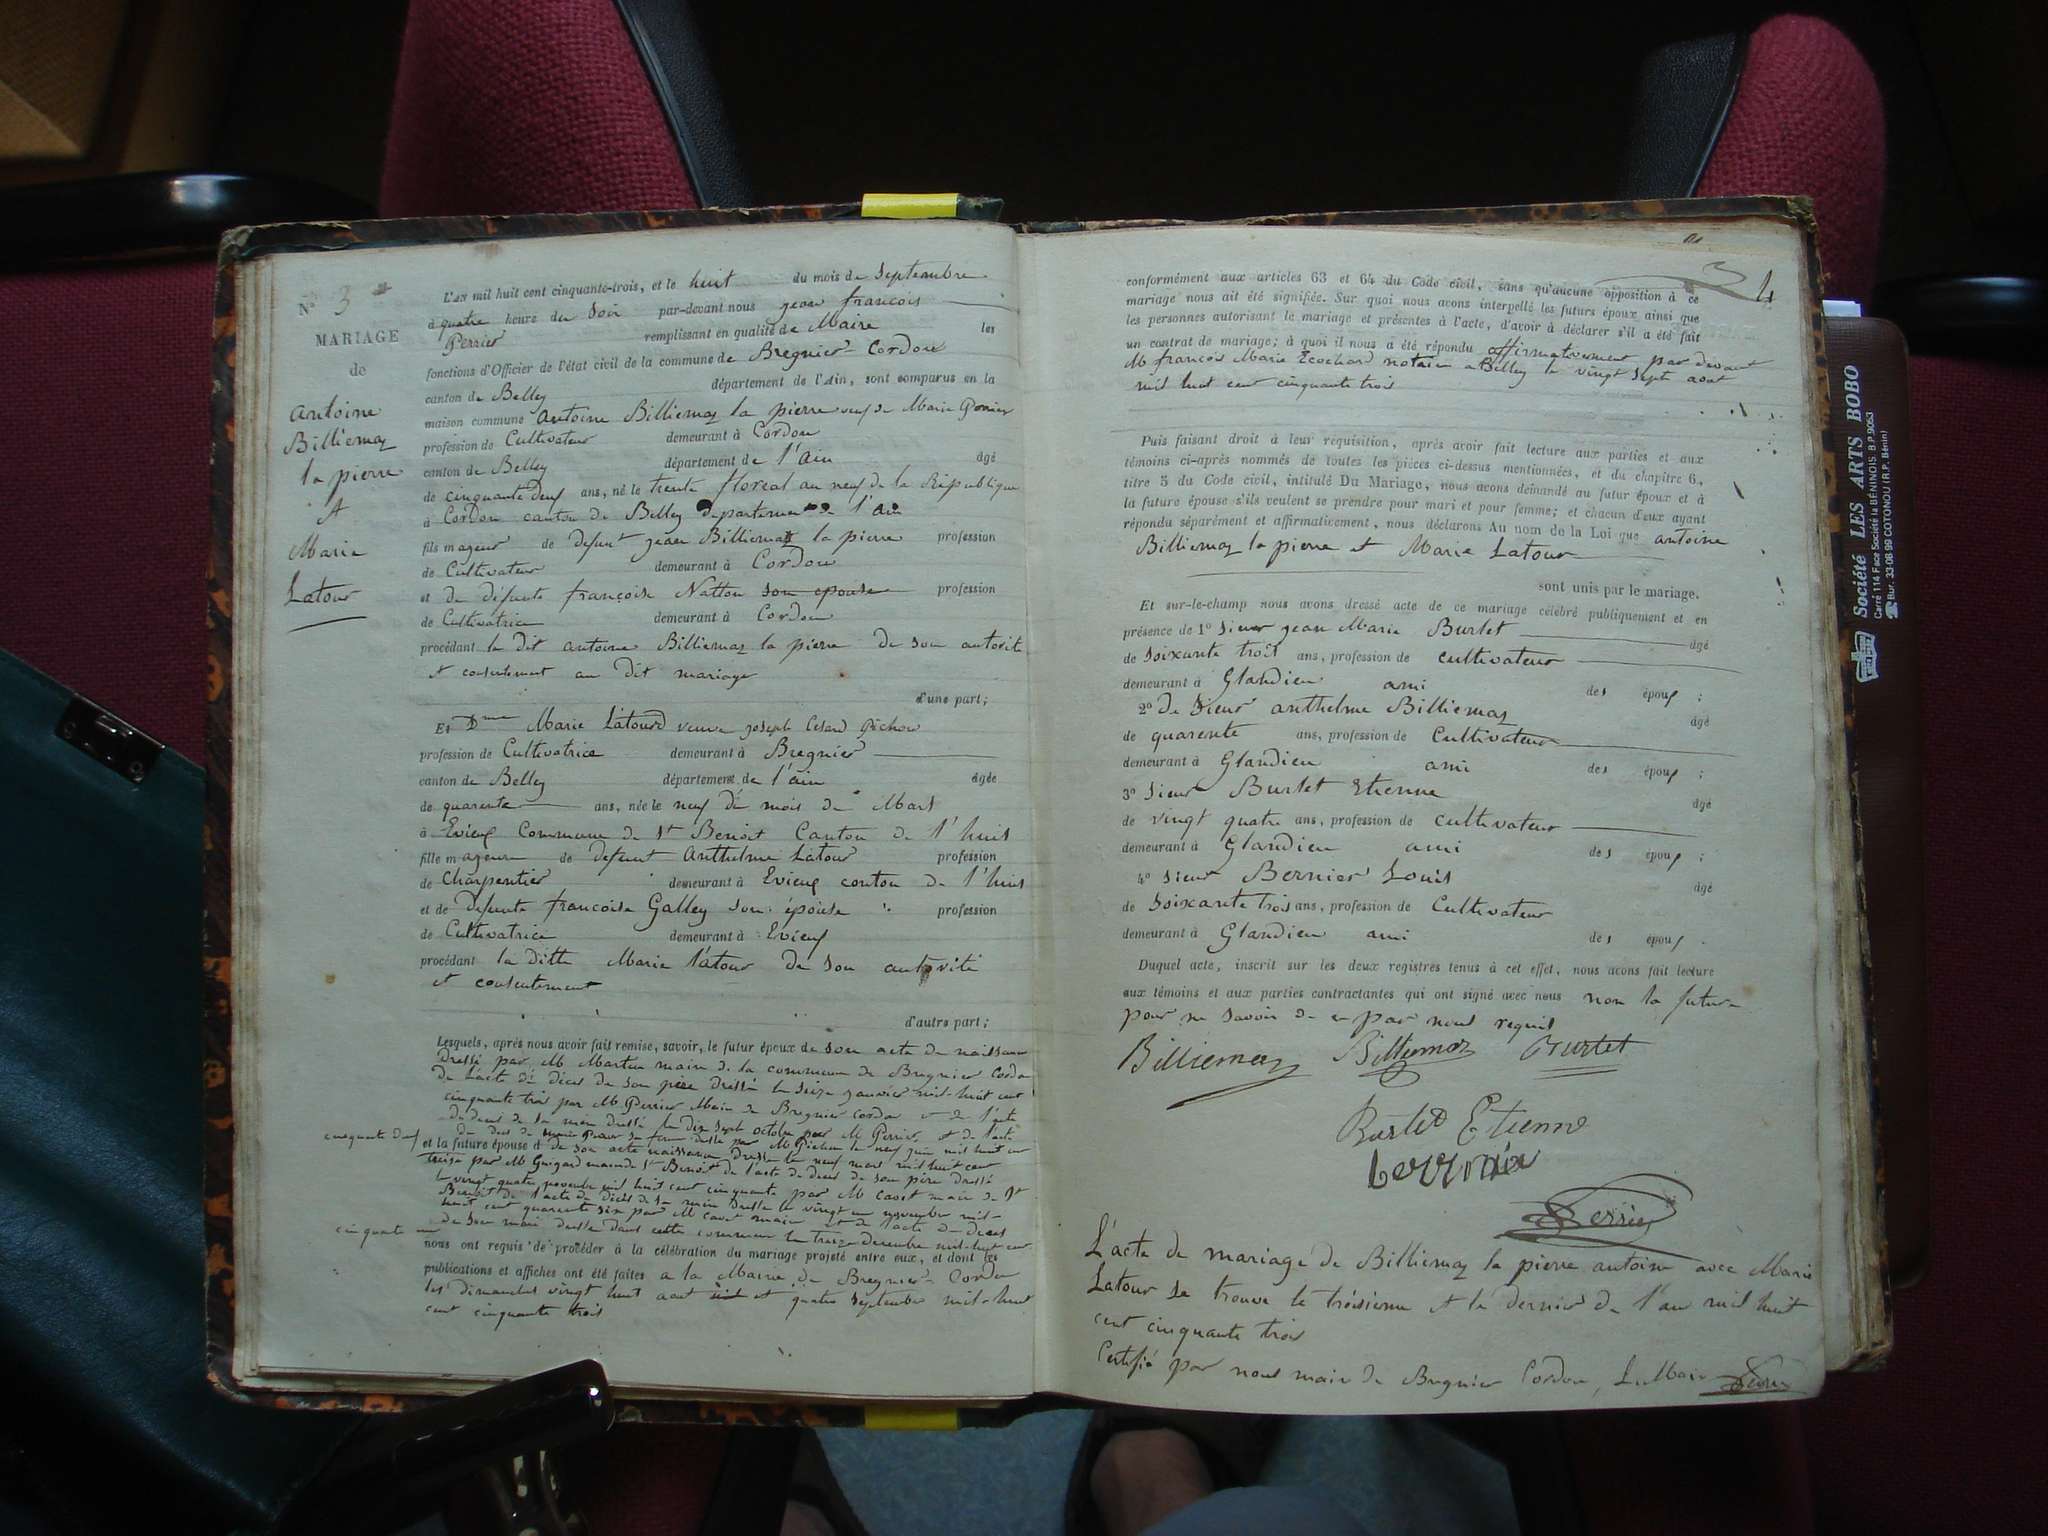 N° 3
MARIAGE
de
antoine
Billiemaz
la pierre
et
Marie
Latour
L'AN mil huit cent cinquante-trois, et le huit du mois de Septembre
à quatre heure du Soir par-devant nous jean francois
Perrier remplissant en qualité de Maire les
fonctions d'Officier de l'état civil de la commune de Bregnier-Cordon
canton de Belley département de l'Ain, sont comparus en la
maison commune antoine Billiemaz la pierre veuf de Marie
profession de Cultivateur demeurant à Cordon
canton de Belley département de l'ain âgé
de cinquante deux ans, né le trente floreal an neuf de la Republique
à Cordon canton de Belley departement de l'ain
fils majeur de defunt jean Billiemaz la pierre profession
de Cultivateur demeurant à Cordon
et de defunte françoise Natton son epouse profession
de Cultivatrice demeurant à Cordon
procédant le dit antoine Billiemaz la pierre de son autorité
et consentement au dit mariage
d'une part;
Et Dme Marie Latour veuve joseph Cesard Pichon
profession de Cultivatrice demeurant à Bregnier
canton de Belley département de l'ain âgée
de quarente ans, née le neuf du mois de Mars
à Evieux Commune de St Benoit Canton de l'huis
fille majeure de defunt Anthelme Latour profession
de Charpentier demeurant à Evieux conton de l'huis
et de defunte francoise Galley son épouse profession
de Cultivatrice demeurant à Evieux
procédant la ditte Marie latour de son autorité
et consentement
d'autre part;
Lesquels, après nous avoir fait remise, savoir, le futur époux de son acte de naissance
dressé par M Martin maire de la commune de Bregnier Cordon
de l'acte de déces de son père dressé le seize janvier mil-huit cent
cinquante trois par M Perrier Maire de Bregnier cordon et de l'acte
de deces de sa mere dressé le dix sept octobre par M Perrier et de l'acte
de deces de sa femme dressé par M Pichon le neuf juin mil huit cent
cinquante deux
et la future épouse de son acte naissance dressé le neuf mars mil huit cent
treize par M Guigard maire de St Benoit de l'acte de deces de son père dressé
le vingt quatre novembre mil huit cent cinquante par M Cavet maire de St
Benoit de l'acte de décès de sa mère dressé le vingt un novembre mil-
huit cent quarente six par M Cavet maire et de l'acte de deces
de son mari dressé dans cette commune le treize decembre mil-huit cent
cinquante un
nous ont requis de procéder à la célébration du mariage projeté entre eux, et dont les
publications et affiches ont été faites a la Mairie de Bregnier-Cordon
les dimanches vingt huit aout et quatre septembre mil-huit
cent cinquante trois
3 4
conformément aux articles 63 et 64 du Code civil, sans qu'aucune opposition à ce
mariage nous ait été signifiée. Sur quoi nous avons interpellé les futurs époux ainsi que
les personnes autorisant le mariage et présentes à l'acte, d'avoir à déclarer s'il a été fait
un contrat de mariage; à quoi il nous a été répondu affirmativement par devant
M francois Marie Ecochard notaire a Belley le vingt sept aout
mil huit cent cinquante trois
Puis faisant droit à leur réquisition, après avoir fait lecture aux parties et aux
témoins ci-après nommés de toutes les pièces ci-dessus mentionnées, et du chapitre 6,
titre 5 du Code civil, intitulé Du Mariage, nous avons demandé au futur époux et à
la future épouse s'ils veulent se prendre pour mari et pour femme; et chacun d'eux ayant
répondu séparément et affirmativement, nous déclarons Au nom de la Loi que antoine
Billiemaz la pierre et Marie Latour
sont unis par le mariage.
Et sur-le-champ nous avons dressé acte de ce mariage célébré publiquement et en
présence de 1° Sieur jean Marie Burlet âgé
de Soixante trois ans, profession de cultivateur
demeurant à Glandieu ami des époux ;
2° de Sieur anthelme Billiemaz âgé
de quarente ans, profession de Cultivateur
demeurant à Glandieu ami des époux ;
3° Sieur Burlet Etienne âgé
de vingt quatre ans, profession de cultivateur
demeurant à Glandieu ami des époux ;
4° Sieur Bernier Louis âgé
de Soixante trois ans, profession de Cultivateur
demeurant à Glandieu ami des époux .
Duquel acte, inscrit sur les deux registres tenus à cet effet, nous avons fait lecture
aux témoins et aux parties contractantes qui ont signé avec nous non la future
pour ne savoir de ce par nous requis
Billiemaz Billiemaz Burlet
Burlet Etienne
Perrier
L'acte de mariage de Billiemaz la pierre antoine avec Marie
Latour se trouve le troisieme et le dernier de l'an mil huit
cent cinquante trois
Certifié par nous maire de Bregnier Cordon, Le Maire Perrier
Société LES ARTS BOBO
Carré 114 Face Société la BÉNINOIS. B.P. 9053
Bur. 33-08 99 COTONOU (R.P. Bénin)